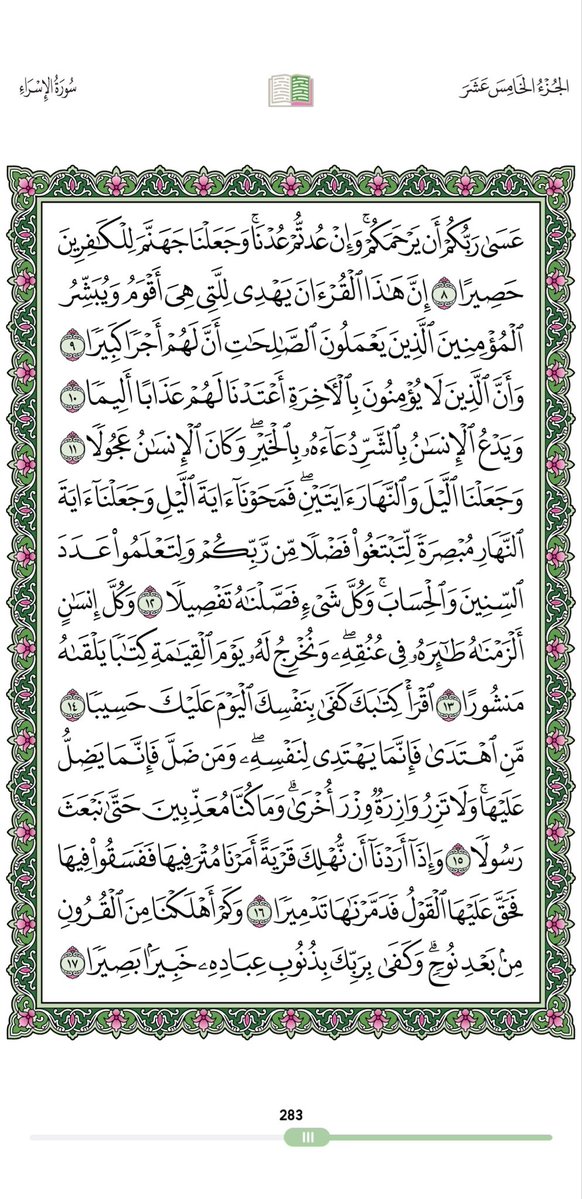 الجُزْءُ الخَامِسَ عَشَرَ
سُورَةُ الإِسْرَاءِ
عَسَىٰ رَبُّكُمْ أَن يَرْحَمَكُمْۚ وَإِنْ عُدتُّمْ عُدْنَاۚ وَجَعَلْنَا جَهَنَّمَ لِلْكَٰفِرِينَ
حَصِيرًا ٨ إِنَّ هَٰذَا ٱلْقُرْءَانَ يَهْدِى لِلَّتِى هِىَ أَقْوَمُ وَيُبَشِّرُ
ٱلْمُؤْمِنِينَ ٱلَّذِينَ يَعْمَلُونَ ٱلصَّٰلِحَٰتِ أَنَّ لَهُمْ أَجْرًا كَبِيرًا ٩
وَأَنَّ ٱلَّذِينَ لَا يُؤْمِنُونَ بِٱلْءَاخِرَةِ أَعْتَدْنَا لَهُمْ عَذَابًا أَلِيمًا ١٠
وَيَدْعُ ٱلْإِنسَٰنُ بِٱلشَّرِّ دُعَآءَهُۥ بِٱلْخَيْرِۖ وَكَانَ ٱلْإِنسَٰنُ عَجُولًا ١١
وَجَعَلْنَا ٱلَّيْلَ وَٱلنَّهَارَ ءَايَتَيْنِۖ فَمَحَوْنَآ ءَايَةَ ٱلَّيْلِ وَجَعَلْنَآ ءَايَةَ
ٱلنَّهَارِ مُبْصِرَةً لِّتَبْتَغُوا۟ فَضْلًا مِّن رَّبِّكُمْ وَلِتَعْلَمُوا۟ عَدَدَ
ٱلسِّنِينَ وَٱلْحِسَابَۚ وَكُلَّ شَىْءٍ فَصَّلْنَٰهُ تَفْصِيلًا ١٢ وَكُلَّ إِنسَٰنٍ
أَلْزَمْنَٰهُ طَٰٓئِرَهُۥ فِى عُنُقِهِۦۖ وَنُخْرِجُ لَهُۥ يَوْمَ ٱلْقِيَٰمَةِ كِتَٰبًا يَلْقَىٰهُ
مَنشُورًا ١٣ ٱقْرَأْ كِتَٰبَكَ كَفَىٰ بِنَفْسِكَ ٱلْيَوْمَ عَلَيْكَ حَسِيبًا ١٤
مَّنِ ٱهْتَدَىٰ فَإِنَّمَا يَهْتَدِى لِنَفْسِهِۦۖ وَمَن ضَلَّ فَإِنَّمَا يَضِلُّ
عَلَيْهَاۚ وَلَا تَزِرُ وَازِرَةٌ وِزْرَ أُخْرَىٰۗ وَمَا كُنَّا مُعَذِّبِينَ حَتَّىٰ نَبْعَثَ
رَسُولًا ١٥ وَإِذَآ أَرَدْنَآ أَن نُّهْلِكَ قَرْيَةً أَمَرْنَا مُتْرَفِيهَا فَفَسَقُوا۟ فِيهَا
فَحَقَّ عَلَيْهَا ٱلْقَوْلُ فَدَمَّرْنَٰهَا تَدْمِيرًا ١٦ وَكَمْ أَهْلَكْنَا مِنَ ٱلْقُرُونِ
مِنۢ بَعْدِ نُوحٍۗ وَكَفَىٰ بِرَبِّكَ بِذُنُوبِ عِبَادِهِۦ خَبِيرًۢا بَصِيرًا ١٧
283